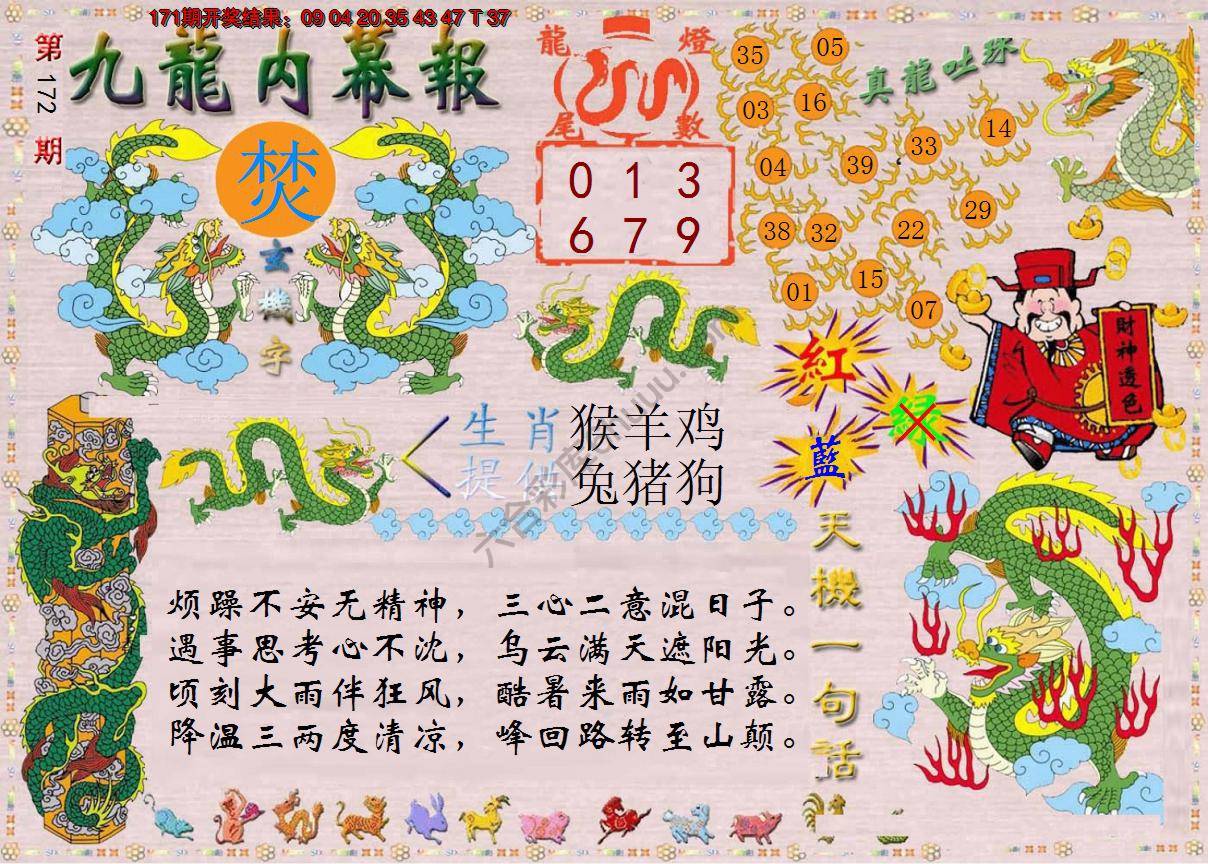 171期开奖结果：09 04 20 35 43 47 T 37
第172期
九龍内幕報
焚
玄機字
龍燈尾數
0 1 3
6 7 9
真龍吐珠
35 05
03 16
04 39 33 14
38 32 22 29
01 15 07
財神透色
紅
绿
藍
生肖 猴羊鸡
提供 兔猪狗
天機一句話
烦躁不安无精神，三心二意混日子。
遇事思考心不沈，乌云满天遮阳光。
顷刻大雨伴狂风，酷暑来雨如甘露。
降温三两度清凉，峰回路转至山颠。